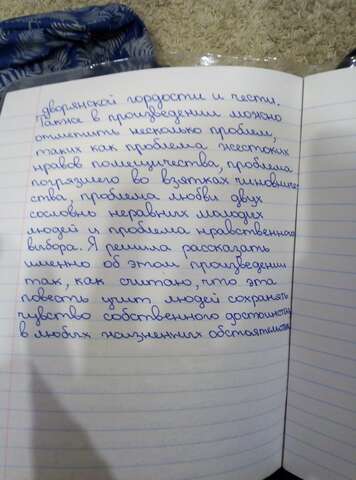 дворянской гордости и чести.
Также в произведении можно
отметить несколько проблем,
таких как проблема жестоких
нравов помещичества, проблема
погрязшего во взятках чиновничес
ства, проблема любви двух
сословно неравных молодых
людей и проблема нравственного
выбора. Я решила рассказать
именно об этом произведении
так, как считаю, что эта
повесть учит людей сохранять
чувство собственного достоинства
в любых жизненных обстоятельства